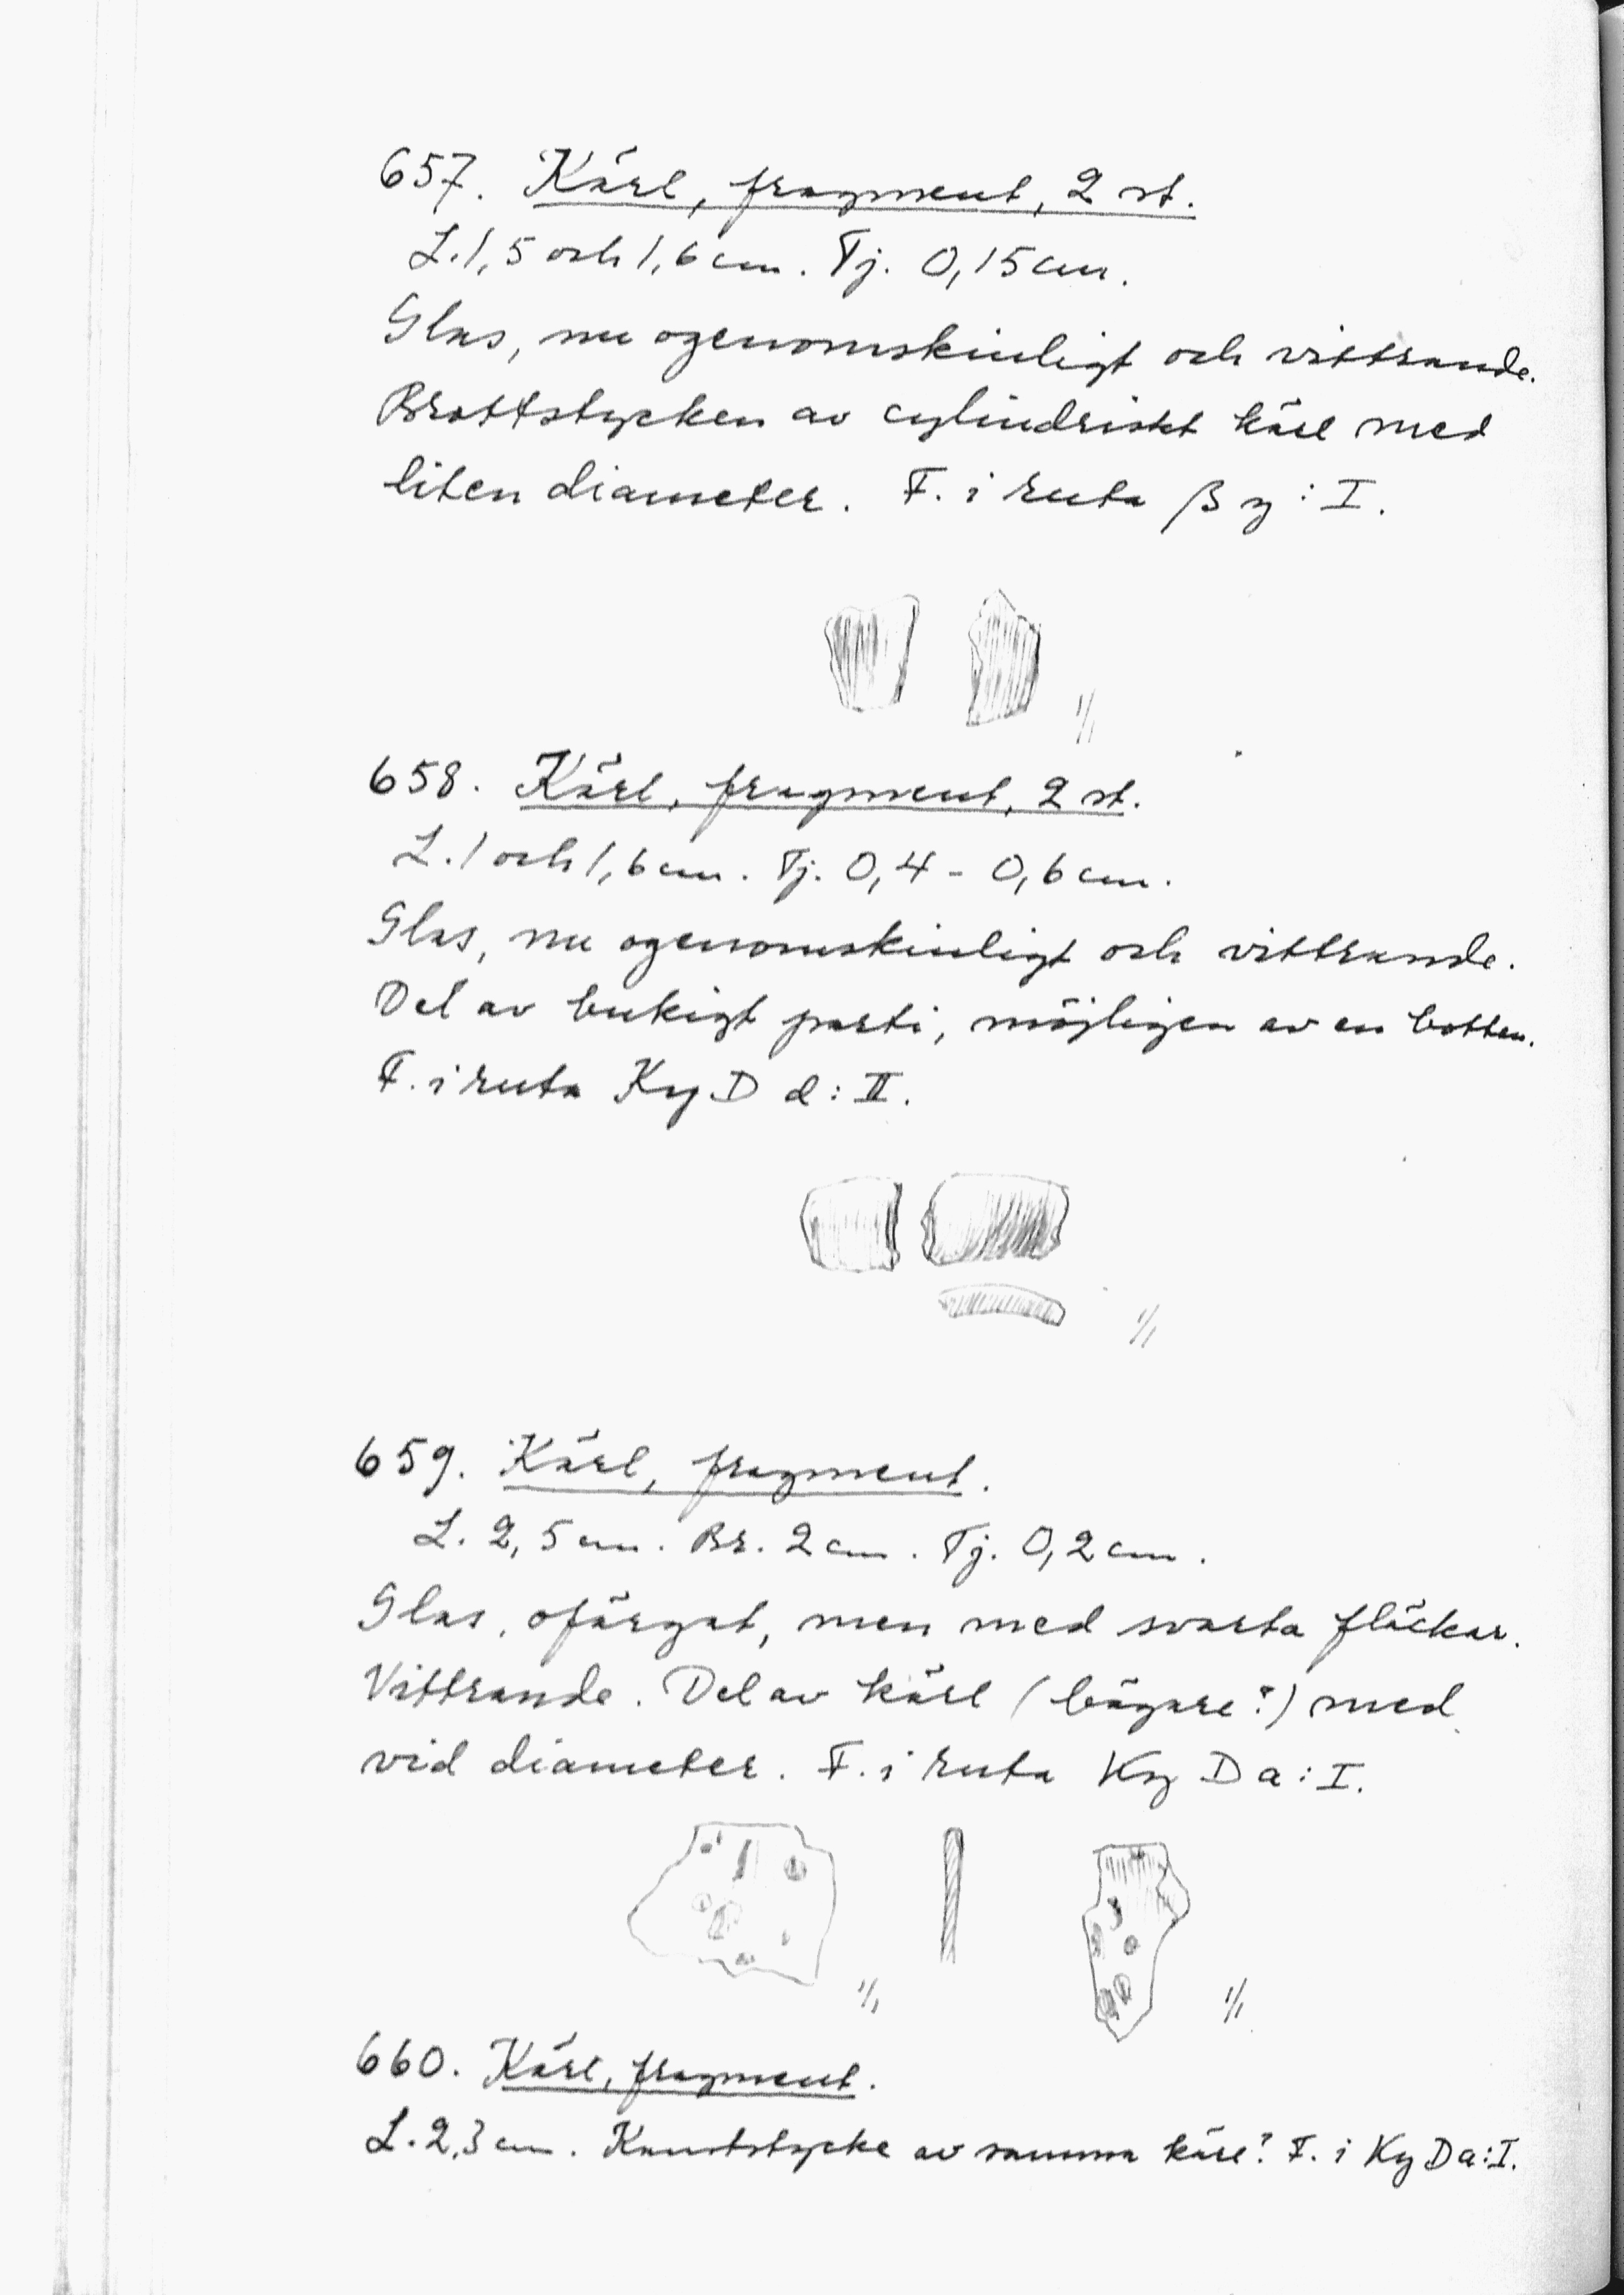 657. Kärl, fragment, 2 st.
L. 1,5 och 1,6 cm. Tj. 0,15 cm.
Glas, nu ogenomskinligt och vittrande.
Brottstycken av cylindriskt kärl med
liten diameter. F. i ruta β y : I.
1/1
658. Kärl, fragment, 2 st.
L. 1 och 1,6 cm. Tj. 0,4 - 0,6 cm.
Glas, nu ogenomskinligt och vittrande.
Del av bukigt parti, möjligen av en botten.
F. i ruta Ky D d : II.
1/1
659. Kärl, fragment.
L. 2,5 cm. Br. 2 cm. Tj. 0,2 cm.
Glas, ofärgat, men med svarta fläckar.
Vittrande. Del av kärl (bägare?) med
vid diameter. F. i ruta Ky D a : I.
1/1 1/1
660. Kärl, fragment.
L. 2,3 cm. Kantstycke av samma kärl? F. i Ky D a : I.